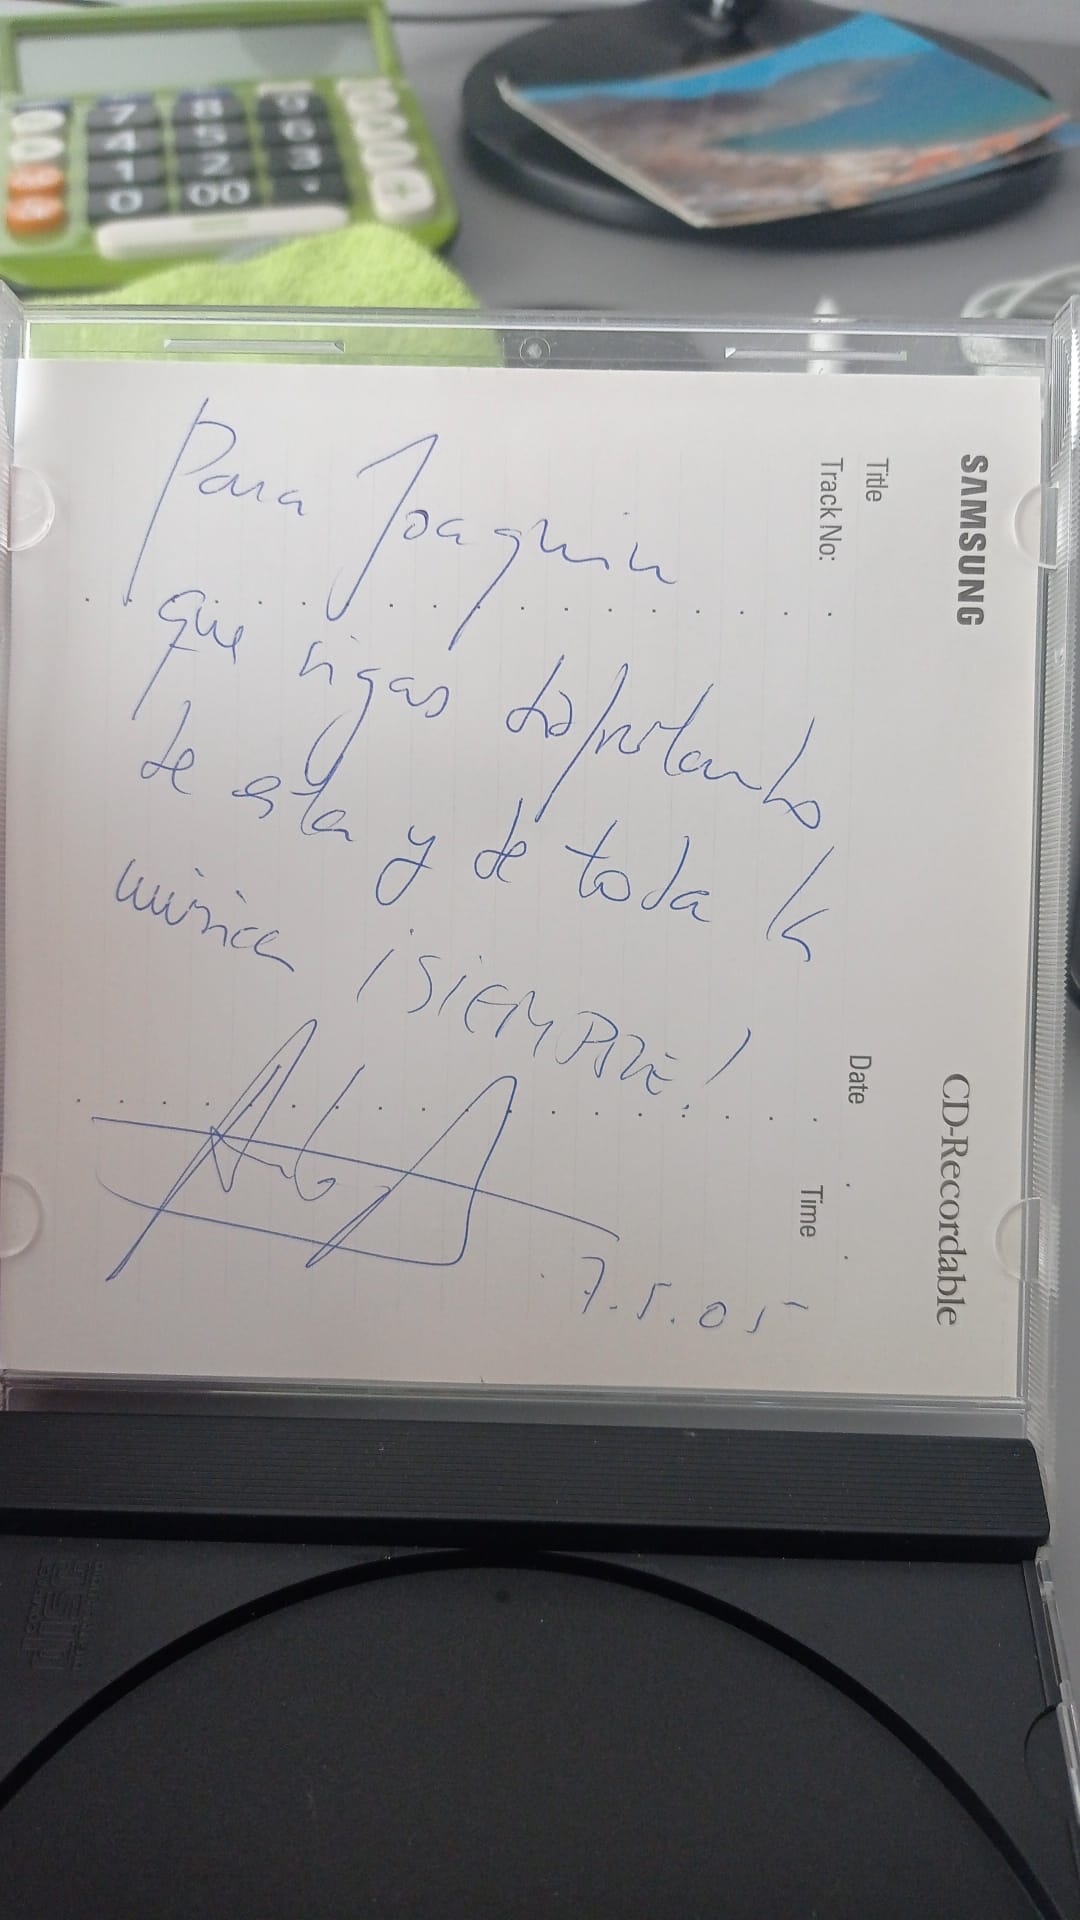 7 8 9
4 5 6
1 2 3
0 00 .
+
SAMSUNG
CD-Recordable
Title
Track No:
Date
Time
Para Joaquin
que sigas disfrutando
de esta y de toda la
música ¡SIEMPRE!
7.5.05